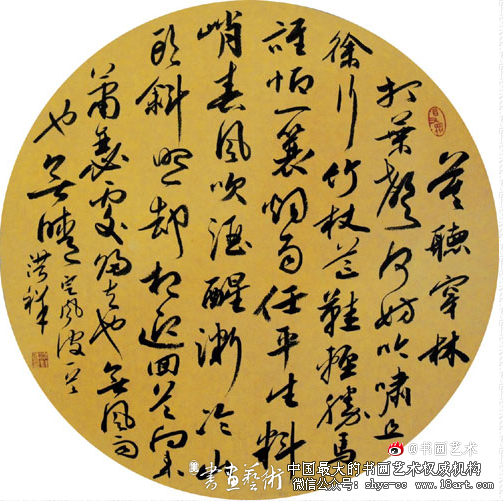 莫聽穿林
打葉聲何妨吟嘯且
徐行竹杖芒鞋輕勝馬
誰怕一蓑烟雨任平生料
峭春風吹酒醒漸冷山
頭斜照却相迎回首向来
蕭瑟處歸去也無風雨
也無晴
定風波一
洪祥
@书画艺术
書畫藝術
中国最大的书画艺术权威机构
微信公众号：shys-cc www.18art.com